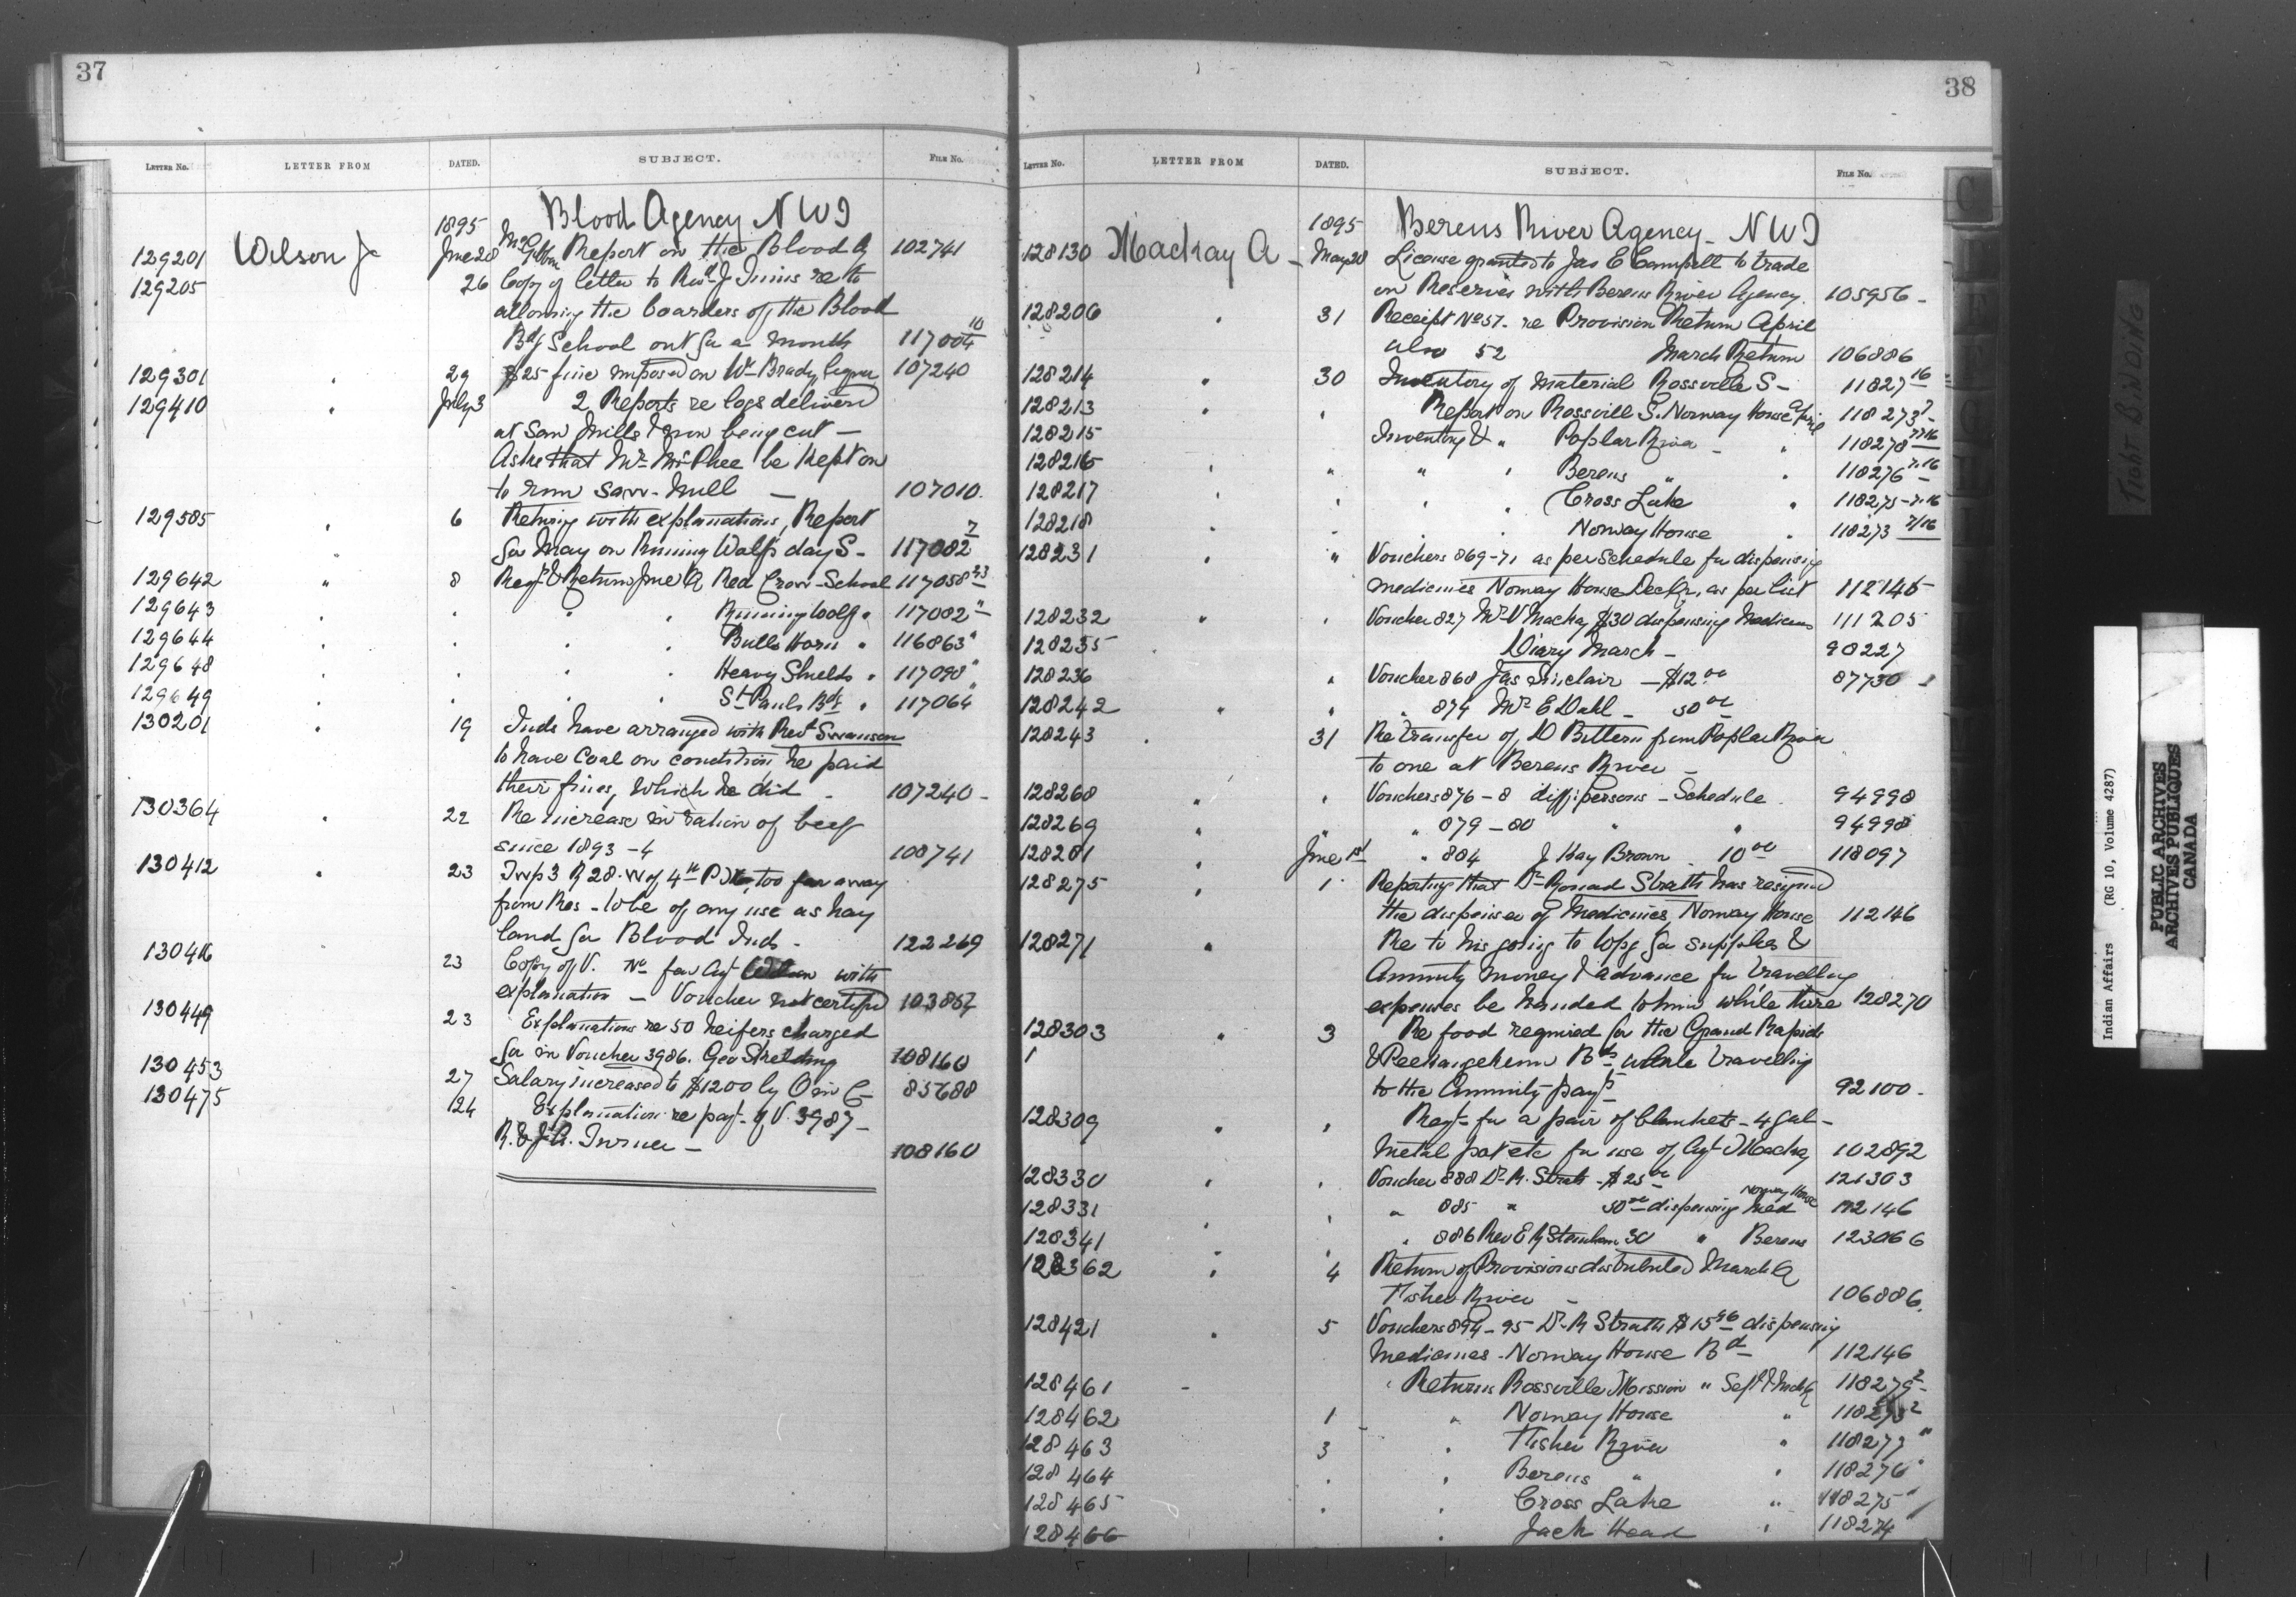 37
LETTER No. LETTER FROM DATED. SUBJECT. FILE No.
1895 Blood Agency N W T
129201 Wilson J June 28 McGibbon Report on the Blood A 102741
129205 26 Copy of letter to Rev J Inins re to
allowing the boarders of the Blood
Bdg School out for a month 117004 10
129301 " 29 $25 fine imposed on Wm Brady liquor 107240
129410 " July 3 2 Reports re logs delivered
at Saw Mills & now being cut —
Asks that Mr McPhee be kept on
to run saw-mill — 107010.
129585 " 6 Returng with explanations, Report
for May on Running Wolf's day S - 117082 7
129642 " 8 Regr & Return June Q Red Crow School 117058 23
129643 " " " Running Wolf " 117082 "
129644 " " " Bulls Horn " 116863 "
129648 " " " Heavy Shields " 117090 "
129649 " " " St Pauls Bdg " 117064 "
130201 " 19 Inds have arranged with Revd Swanson
to have coal on condition he paid
their fines, which he did - 107240 -
130364 " 22 Re increase in ration of beef
since 1893-4 108741
130412 " 23 Twp 3 R 28 W of 4th P.M. too far away
from Res - to be of any use as hay
land for Blood Inds - 122269
130416 23 Copy of V. No for Agt Wilson with
explanation — Voucher not certified 103857
130449 23 Explanations re 50 heifers charged
for in Voucher 3986. Geo Stredding 108160
130453 27 Salary increased to $1200 by O in C - 85688
130475 24 Explanation re payt of V. 3987 —
R. & J.A. Turner — 108160
38
LETTER No. LETTER FROM DATED. SUBJECT. FILE No.
1895 Berens River Agency - N W T
128130 Mackay A - May 28 License granted to Jas E Campell to trade
on Reserves with Berens River Agency. 105956 -
128206 " 31 Receipt No 57. re Provision Return April
also 52 March Return 106886
128214 " 30 Inventory of material Rossville S - 11827 16
128213 " " Report on Rossvill S. Norway House April 118273 7 -
128215 Inventory & " Poplar River - " 118278 7/16
128216 " " " " Berens " " 118276 7.16
128217 " " " Cross Lake " 118275 - 7.16
128218 " " " Norway House " 118273 7/16
128231 " " Vouchers 869-71 as per Schedule for dispensing
medicines Norway House Dec Qr, as per list 112146
128232 " " Voucher 827 Mr V Mackay $30 dispensing Medicines 111205
128235 " Diary March - 90227
128236 " Voucher 868 Jas Sinclair — $12.00 87730
128242 " " " 874 Mr E Dahl - 50.00
128243 " 31 Re transfer of D Bittern from Poplar River
to one at Berens River -
128268 " " Vouchers 876-8 diff. persons - Schedule 94998
128269 " " 879-80 " " 94998
128281 " June 1st " 884 J Hay Brown 10.00 118097
128275 " 1 Reporting that Dr Ronad Strath has resigned
the dispenser of Medicines Norway House 112146
128271 " Re to his going to Wpg for supplies &
Annuity money & advance for travelling
expenses be handed to him while there 128270
128303 " 3 Re food required for the Grand Rapids
& Peekangekum Bds while travelling
to the Annuity payts 92100 -
128309 " " Reqt for a pair of blankets - 4 gal -
metal pot etc for use of Agt Mackay 102892
128330 " " Voucher 888 Dr R. Strath - $25.00 121303
128331 " " 885 " 50.00 dispensing Med Norway House 112146
128341 " " " 886 Rev E R Steinham 30 " Berens 123066
128362 " 4 Return of Provisions distributed March Q
Fisher River - 106886
128421 " 5 Vouchers 894-95 Dr R Strath $15.46 dispensing
Medicines - Norway House Bd - 112146
128461 - " Returns Rossville Mission " Sept & Mch Q 118279 2 -
128462 1 " Norway House " 118273 2
128463 3 " Fisher River " 118277 "
128464 " " Berens " " 118276 "
128465 " " Cross Lake " 118275 "
128466 " Jack Head " 118274 "
C
TIGHT BINDING
Indian Affairs (RG 10, Volume 4287)
PUBLIC ARCHIVES
ARCHIVES PUBLIQUES
CANADA